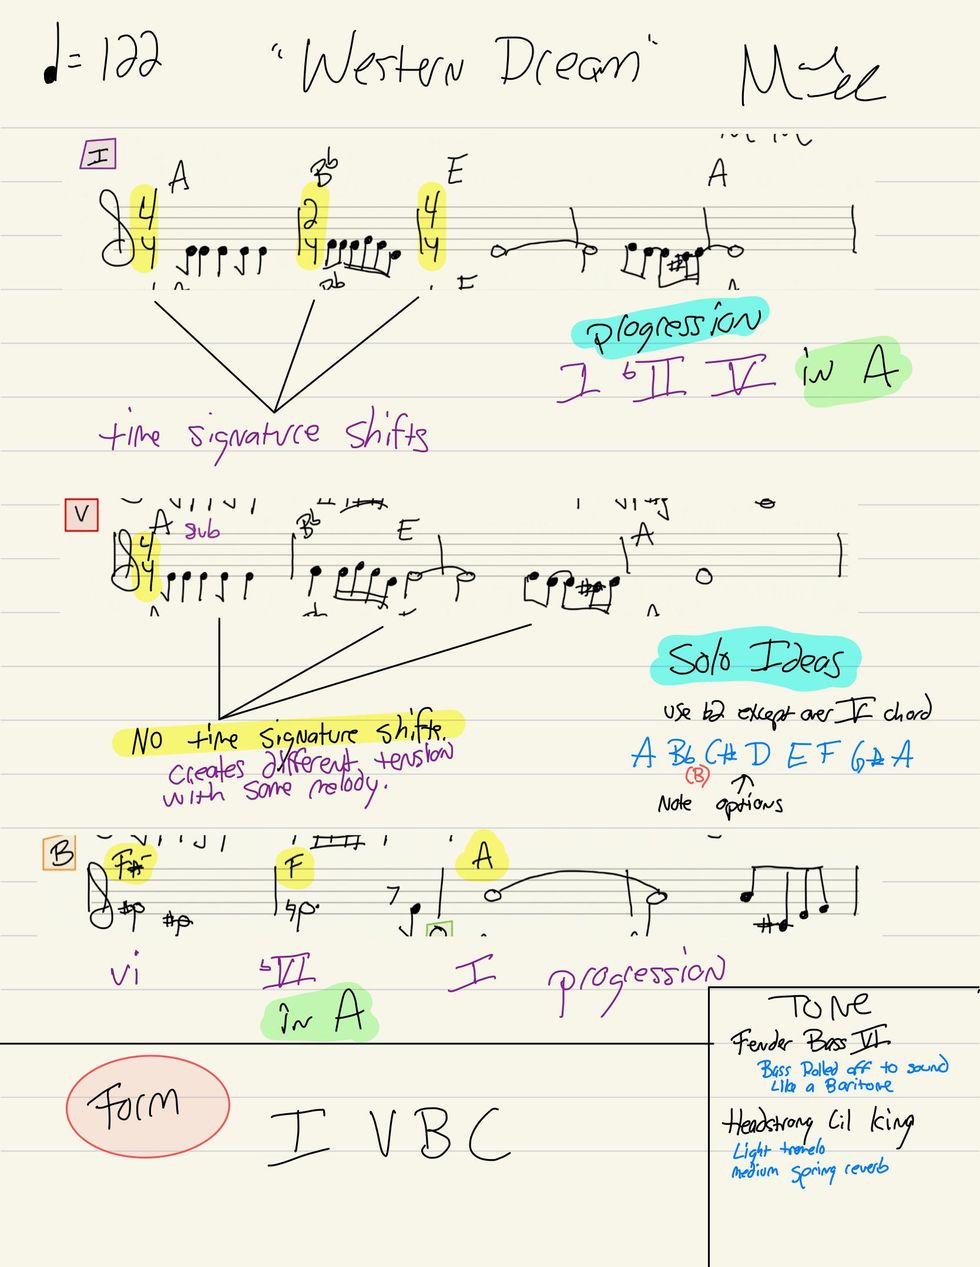 ♩= 122 "Western Dream"
I
A Bb E A
4/4 2/4 4/4
progression
I bII V in A
time signature shifts
V
A sub Bb E A
4/4
Solo Ideas
No time signature shifts.
creates different tension
with same melody.
use b2 except over V chord
A Bb C# D E F G# A
(B)
Note options
B
F#- F A
vi bVI I progression
in A
TONE
Fender Bass VI
Bass Rolled off to sound
Like a Baritone
Form
I V B C
Headstrong Lil King
Light tremelo
medium spring reverb